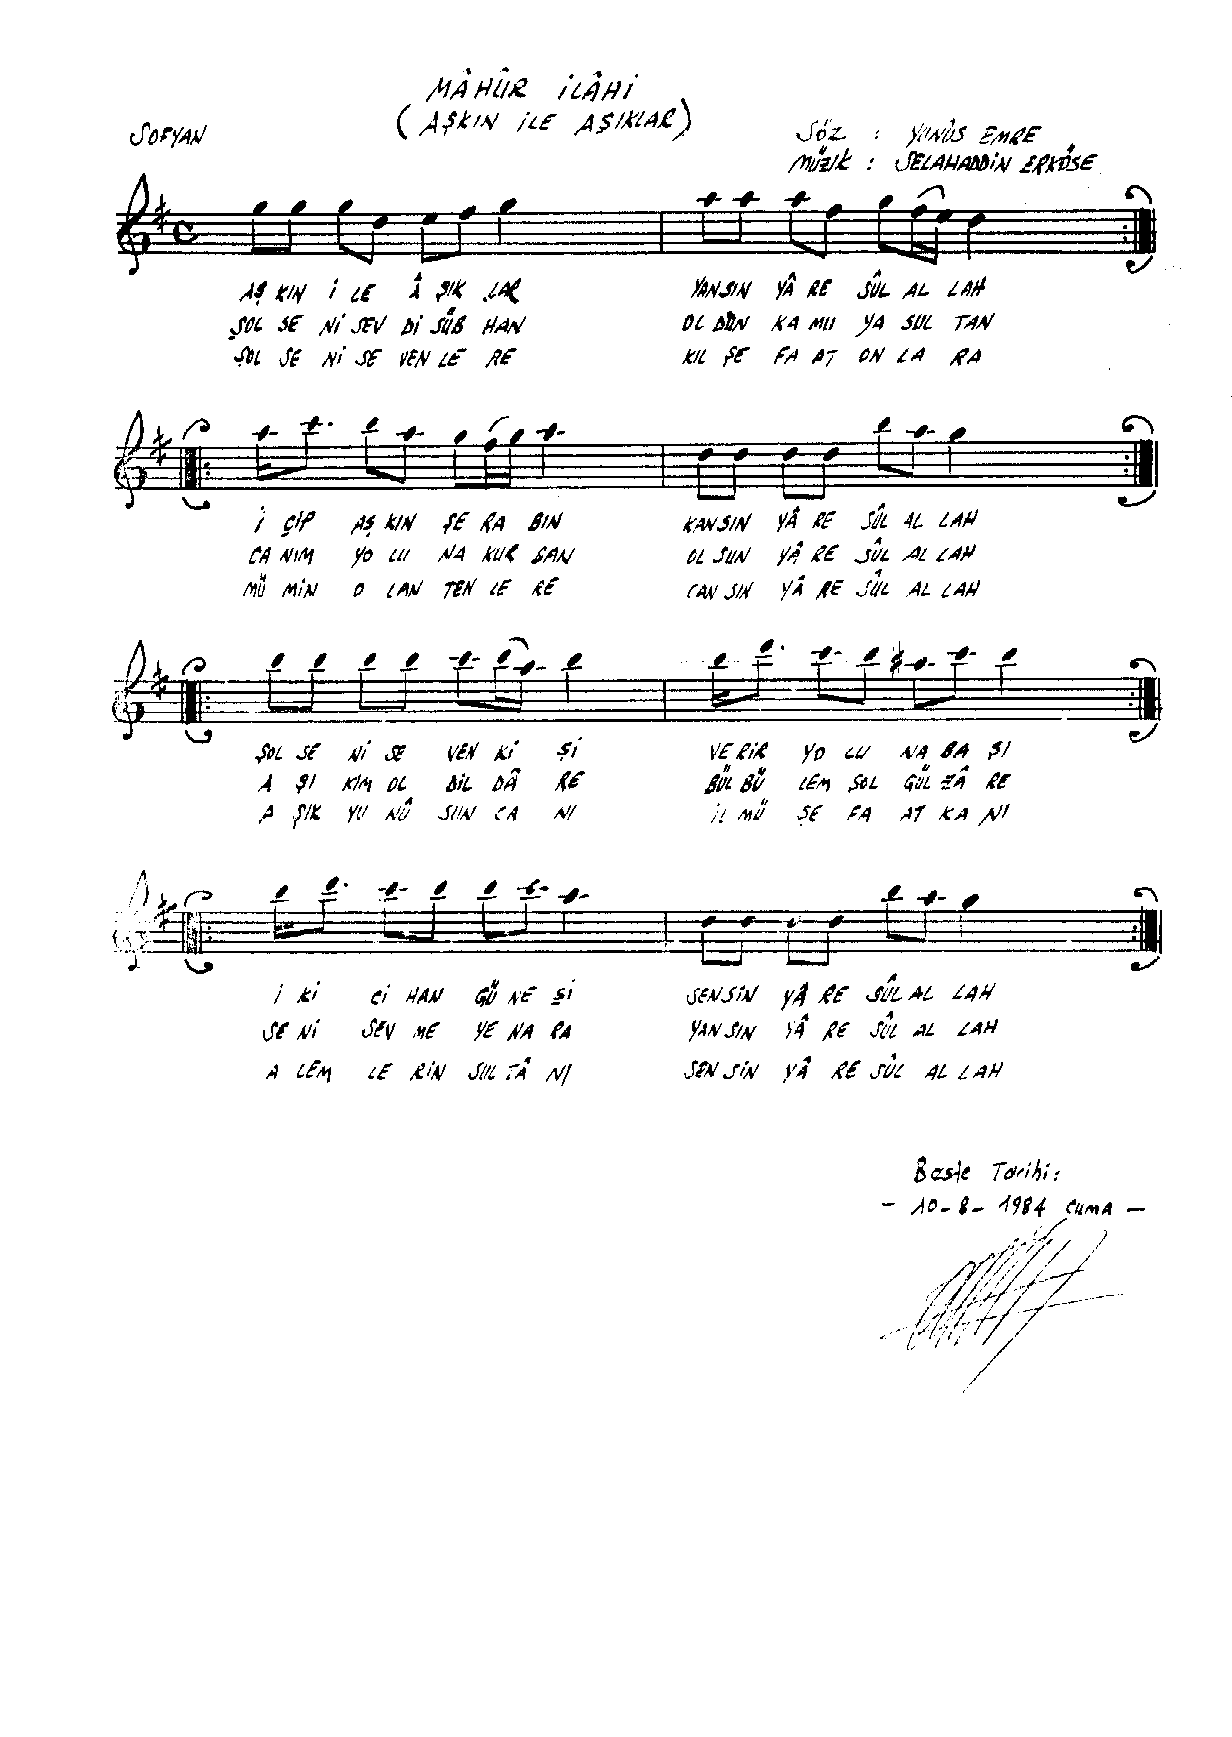 MÂHÛR İLÂHİ
(AŞKIN İLE AŞIKLAR)
SOFYAN
SÖZ : YUNÛS EMRE
MÜZİK : SELAHADDİN ERKÖSE
AŞ KIN İ LE Â ŞIK LAR YANSIN YÂ RE SÛL AL LAH
ŞOL SE Nİ SEV Dİ SÜB HAN OL DUN KA MU YA SUL TAN
ŞOL SE Nİ SE VEN LE RE KIL ŞE FA AT ON LA RA
İ ÇİP AŞ KIN ŞE RA BIN KANSIN YÂ RE SÛL AL LAH
CA NIM YO LU NA KUR BAN OL SUN YÂ RE SÛL AL LAH
MÜ MİN O LAN TEN LE RE CAN SIN YÂ RE SÛL AL LAH
ŞOL SE Nİ SE VEN Kİ Şİ VE RİR YO LU NA BA ŞI
A ŞI KIM OL DİL DÂ RE BÜL BÜ LEM ŞOL GÜL ZÂ RE
A ŞIK YU NÛ SUN CA NI İL MÜ ŞE FA AT KA NI
İ Kİ Cİ HAN GÜ NE Şİ SENSİN YÂ RE SÛL AL LAH
SE Nİ SEV ME YE NA RA YAN SIN YÂ RE SÛL AL LAH
A LEM LE RİN SUL TÂ NI SEN SİN YÂ RE SÛL AL LAH
Beste Tarihi:
- 10-8-1984 CUMA -